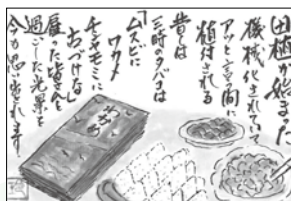 田植が始まった
機械化されていて
アッと言う間に
植付される
昔は
三時のタバコは
「ムスビに
ワカメ
チシャモミに
おづけなど
雇った皆さんと
過ごした光景を
今も思い出されます。
わかめ